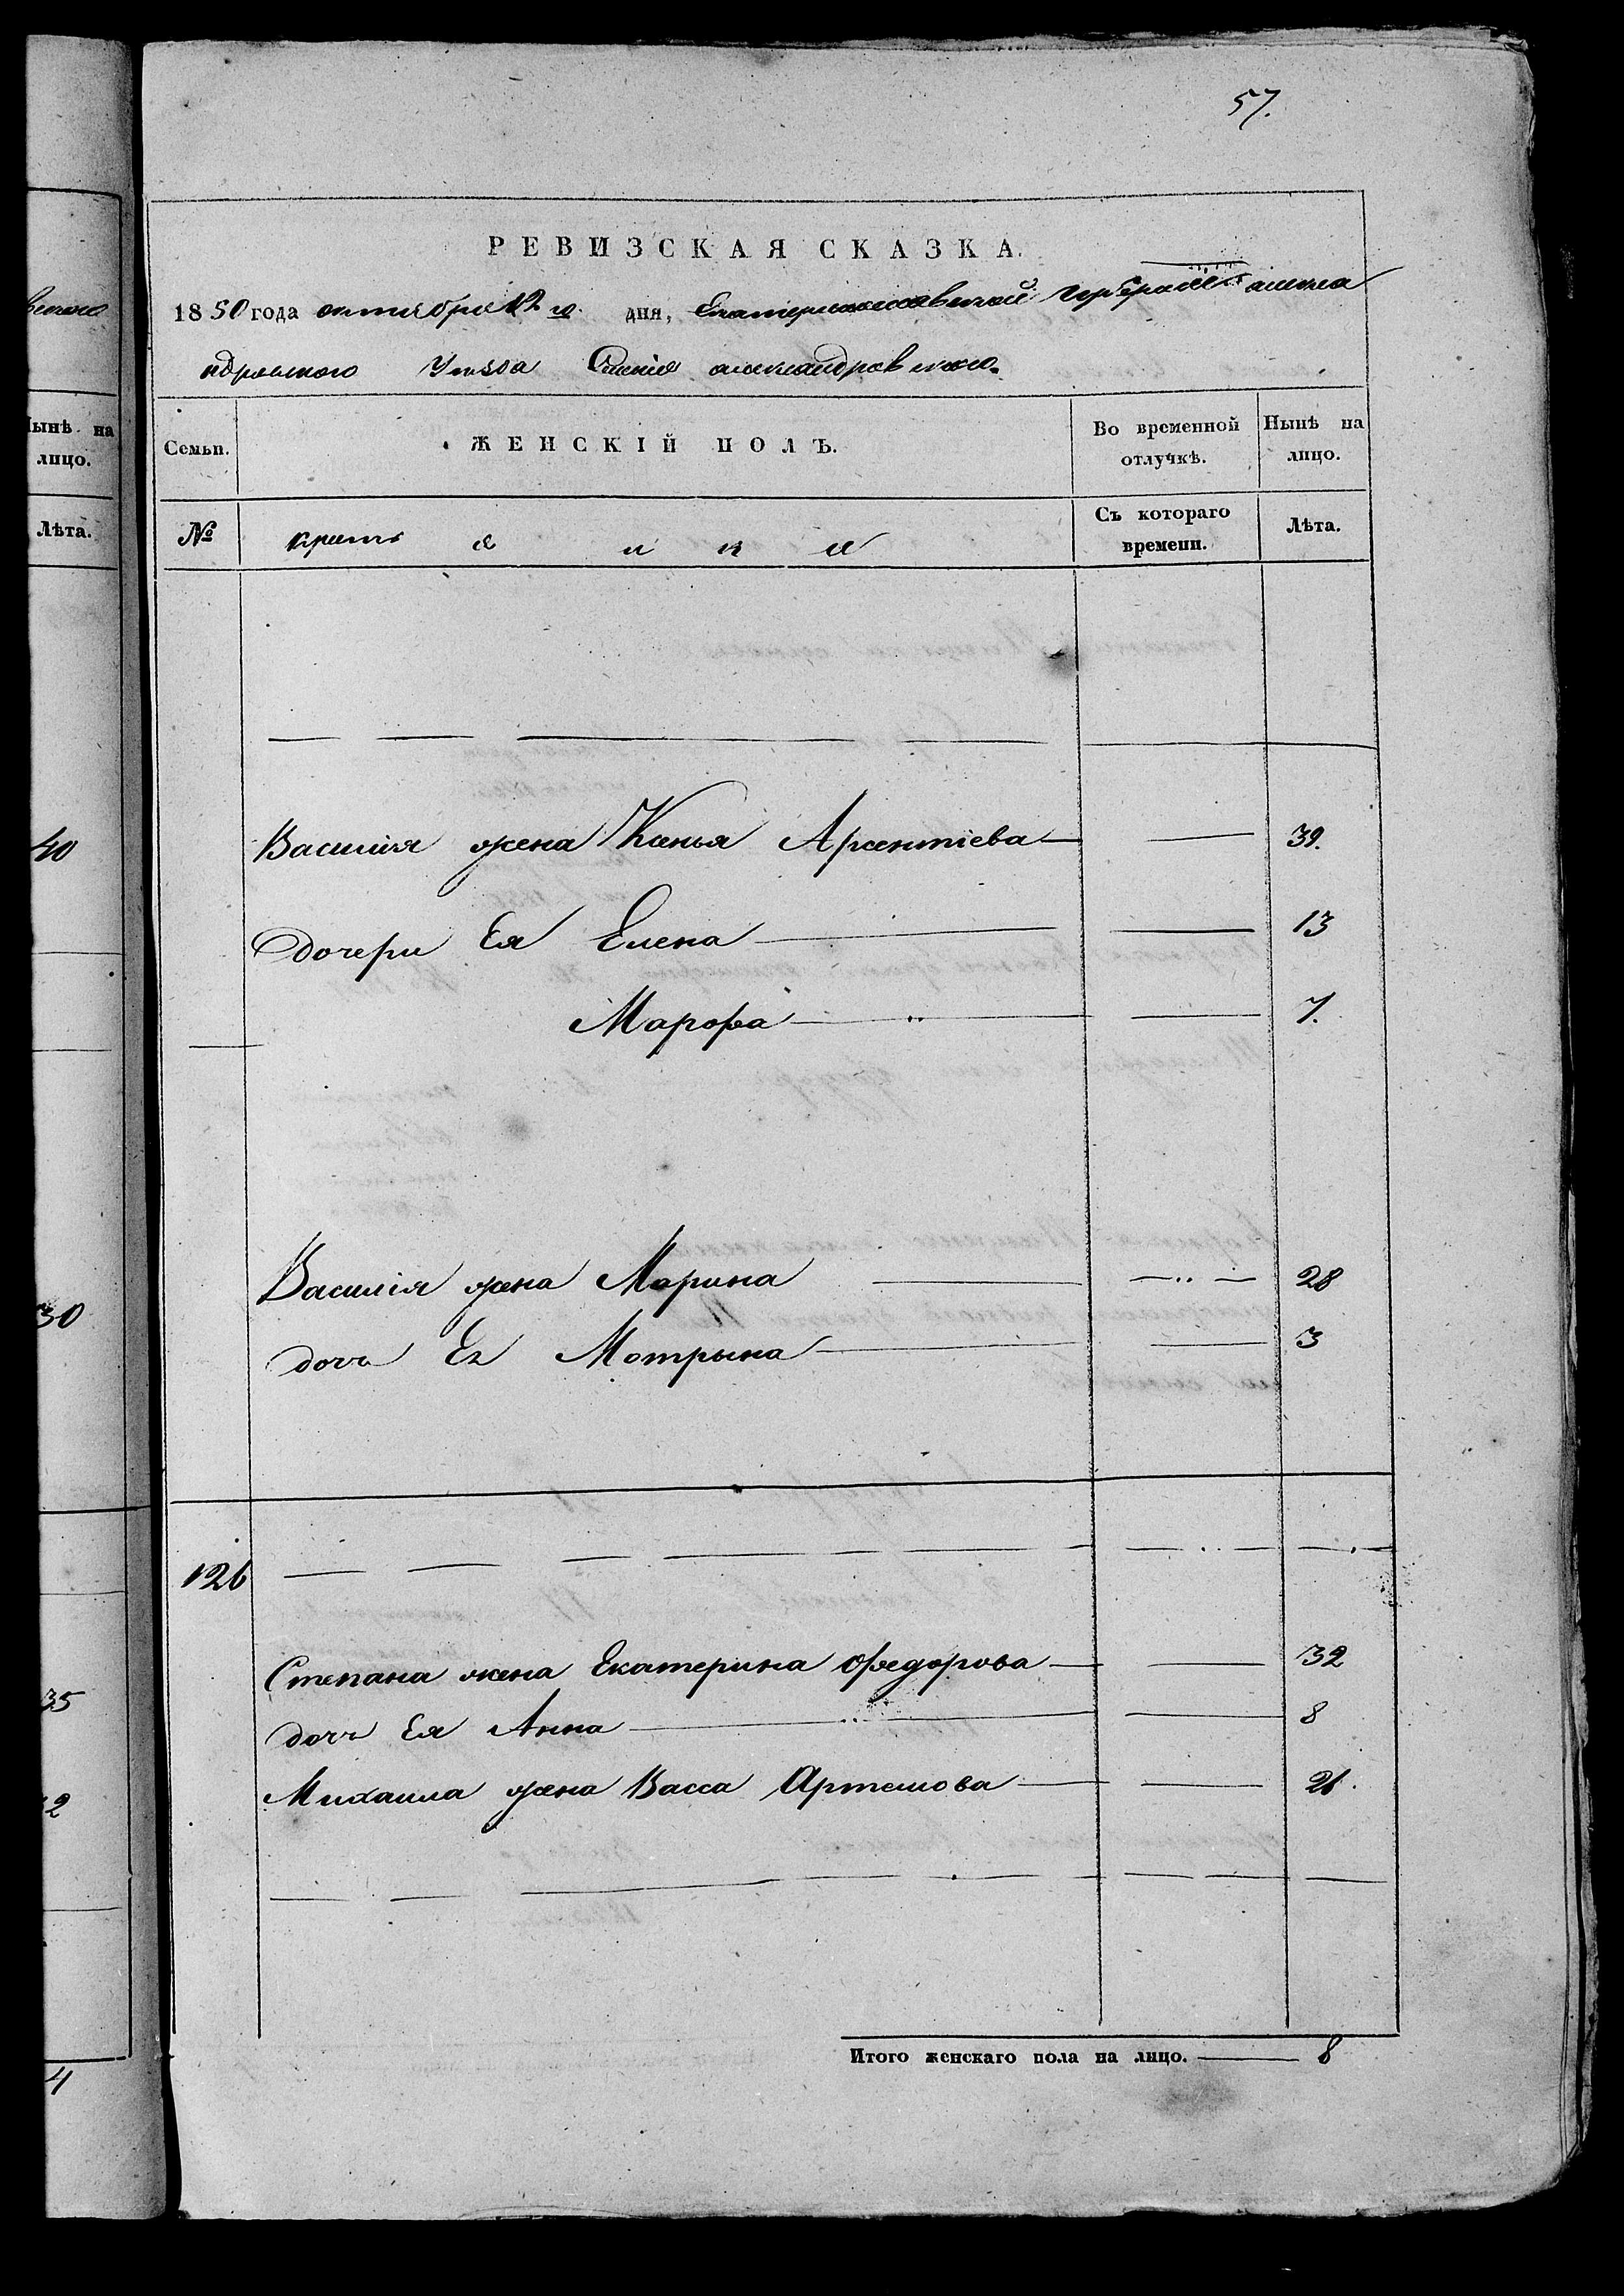 57.
РЕВИЗСКАЯ СКАЗКА.
1850 года октября 12 го. дня, Екатеринославской Губернии алекса
ндровского Уѣзда Селенія александровского.
Семьи. ЖЕНСКІЙ ПОЛЪ. Во временной отлучкѣ. Нынѣ на лицо.
№ Съ котораго времени. Лѣта.
Василія жена Ксенья Арсентіева 39.
дочери Ея Елена 13
Марфа 7.
Василія жена Марина 28
дочь Ея Мотрына 3
126
Степана жена Екатерина Федорова 32
дочь Ея Анна 8
Михаила жена Васса Артемова 21.
Итого женскаго пола на лицо. 8
ынѣ на
лицо.
Лѣта.
40
30
35
2
4